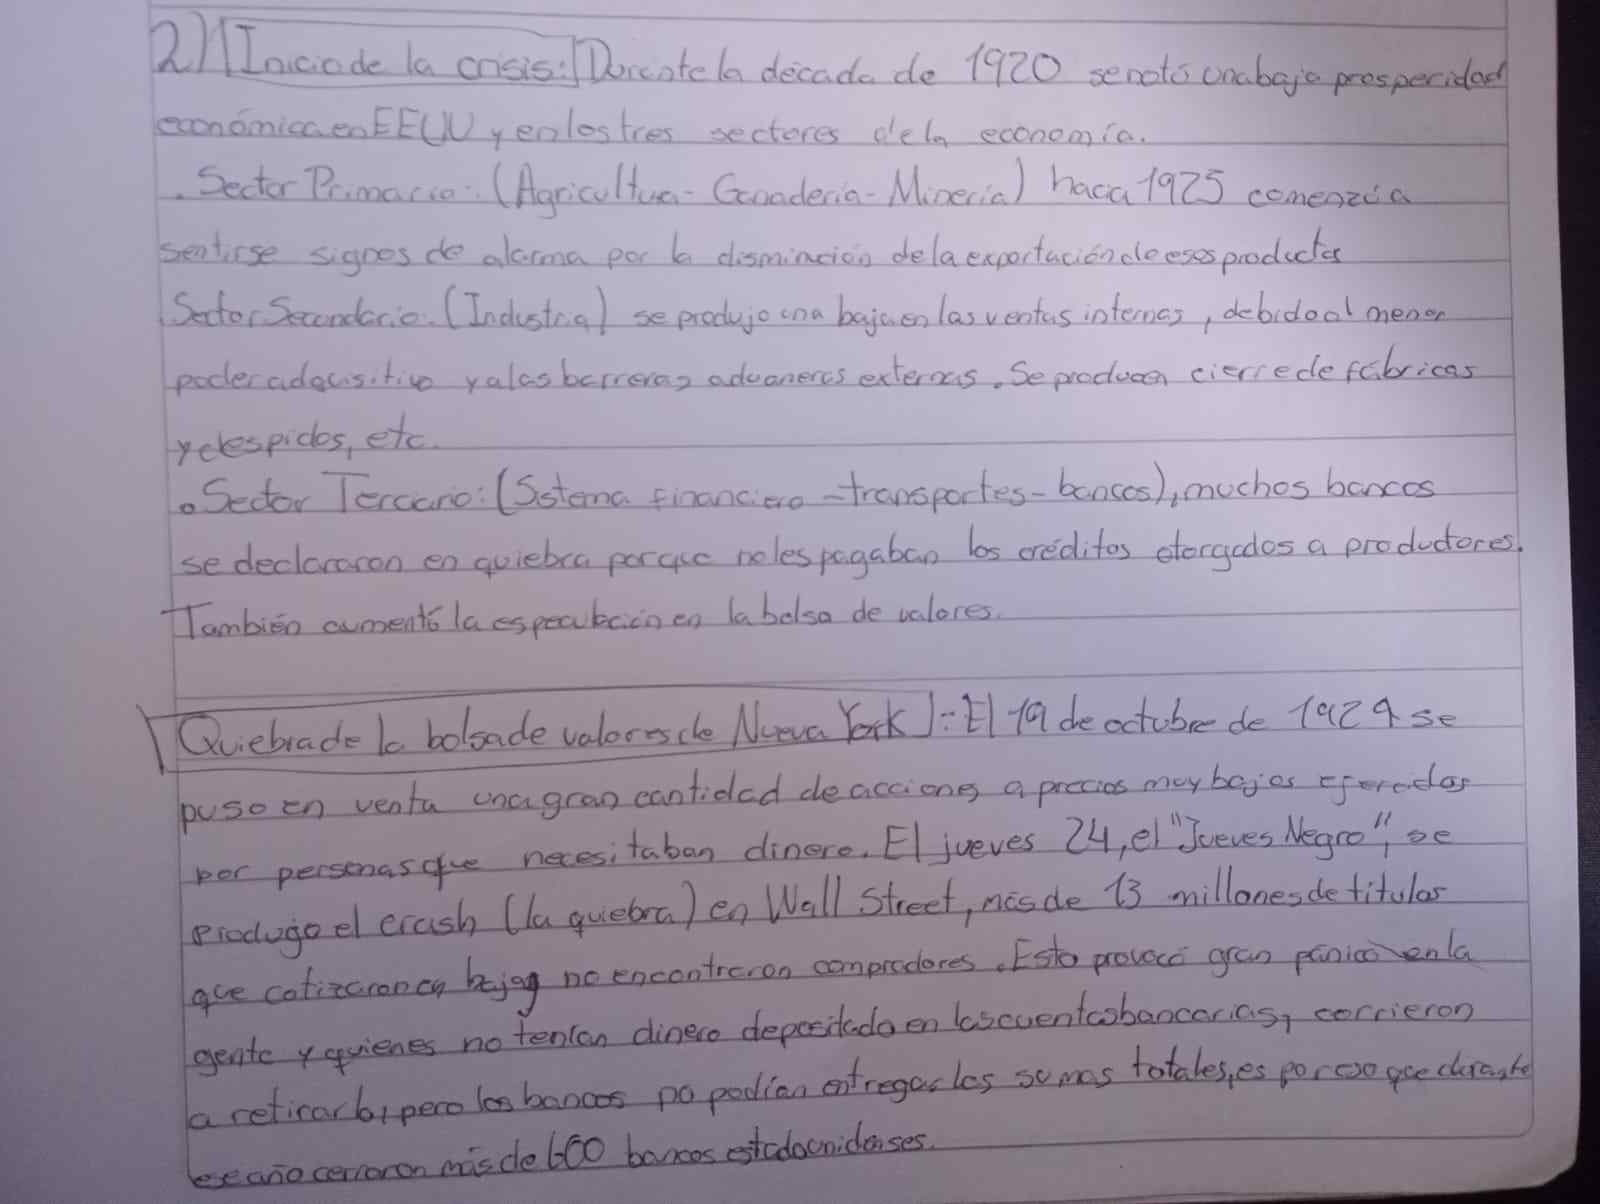 2) Inicio de la crisis: Durante la década de 1920 se notó una baja prosperidad
económica en EEUU y en los tres sectores de la economía.
. Sector Primario: (Agricultura - Ganadería - Minería) hacia 1925 comenzó a
sentirse signos de alarma por la disminación de la exportación de esos productos
. Sector Secundario. (Industria) se produjo una baja en las ventas internas, debido al menor
poder adquisitivo y a las barreras aduaneras externas. Se producen cierre de fábricas
y despidos, etc.
. Sector Terciario: (Sistema financiero - transportes - bancos), muchos bancos
se declararon en quiebra porque no les pagaban los créditos otorgados a productores.
También aumentó la especulación en la bolsa de valores.
Quiebra de la bolsa de valores de Nueva York: El 19 de octubre de 1929 se
puso en venta una gran cantidad de acciones a precios muy bajos ofercidas
por personas que necesitaban dinero. El jueves 24, el "Jueves Negro", se
produgo el crash (la quiebra) en Wall Street, más de 13 millones de titulos
que cotizaron en baja no encontraron compradores. Esto provocó gran pánico en la
gente y quienes no tenían dinero depositado en las cuentas bancarias, corrieron
a retirarlo, pero los bancos no podían entregar las sumas totales, es por eso que durante
ese año cerraron más de 600 bancos estadounidenses.